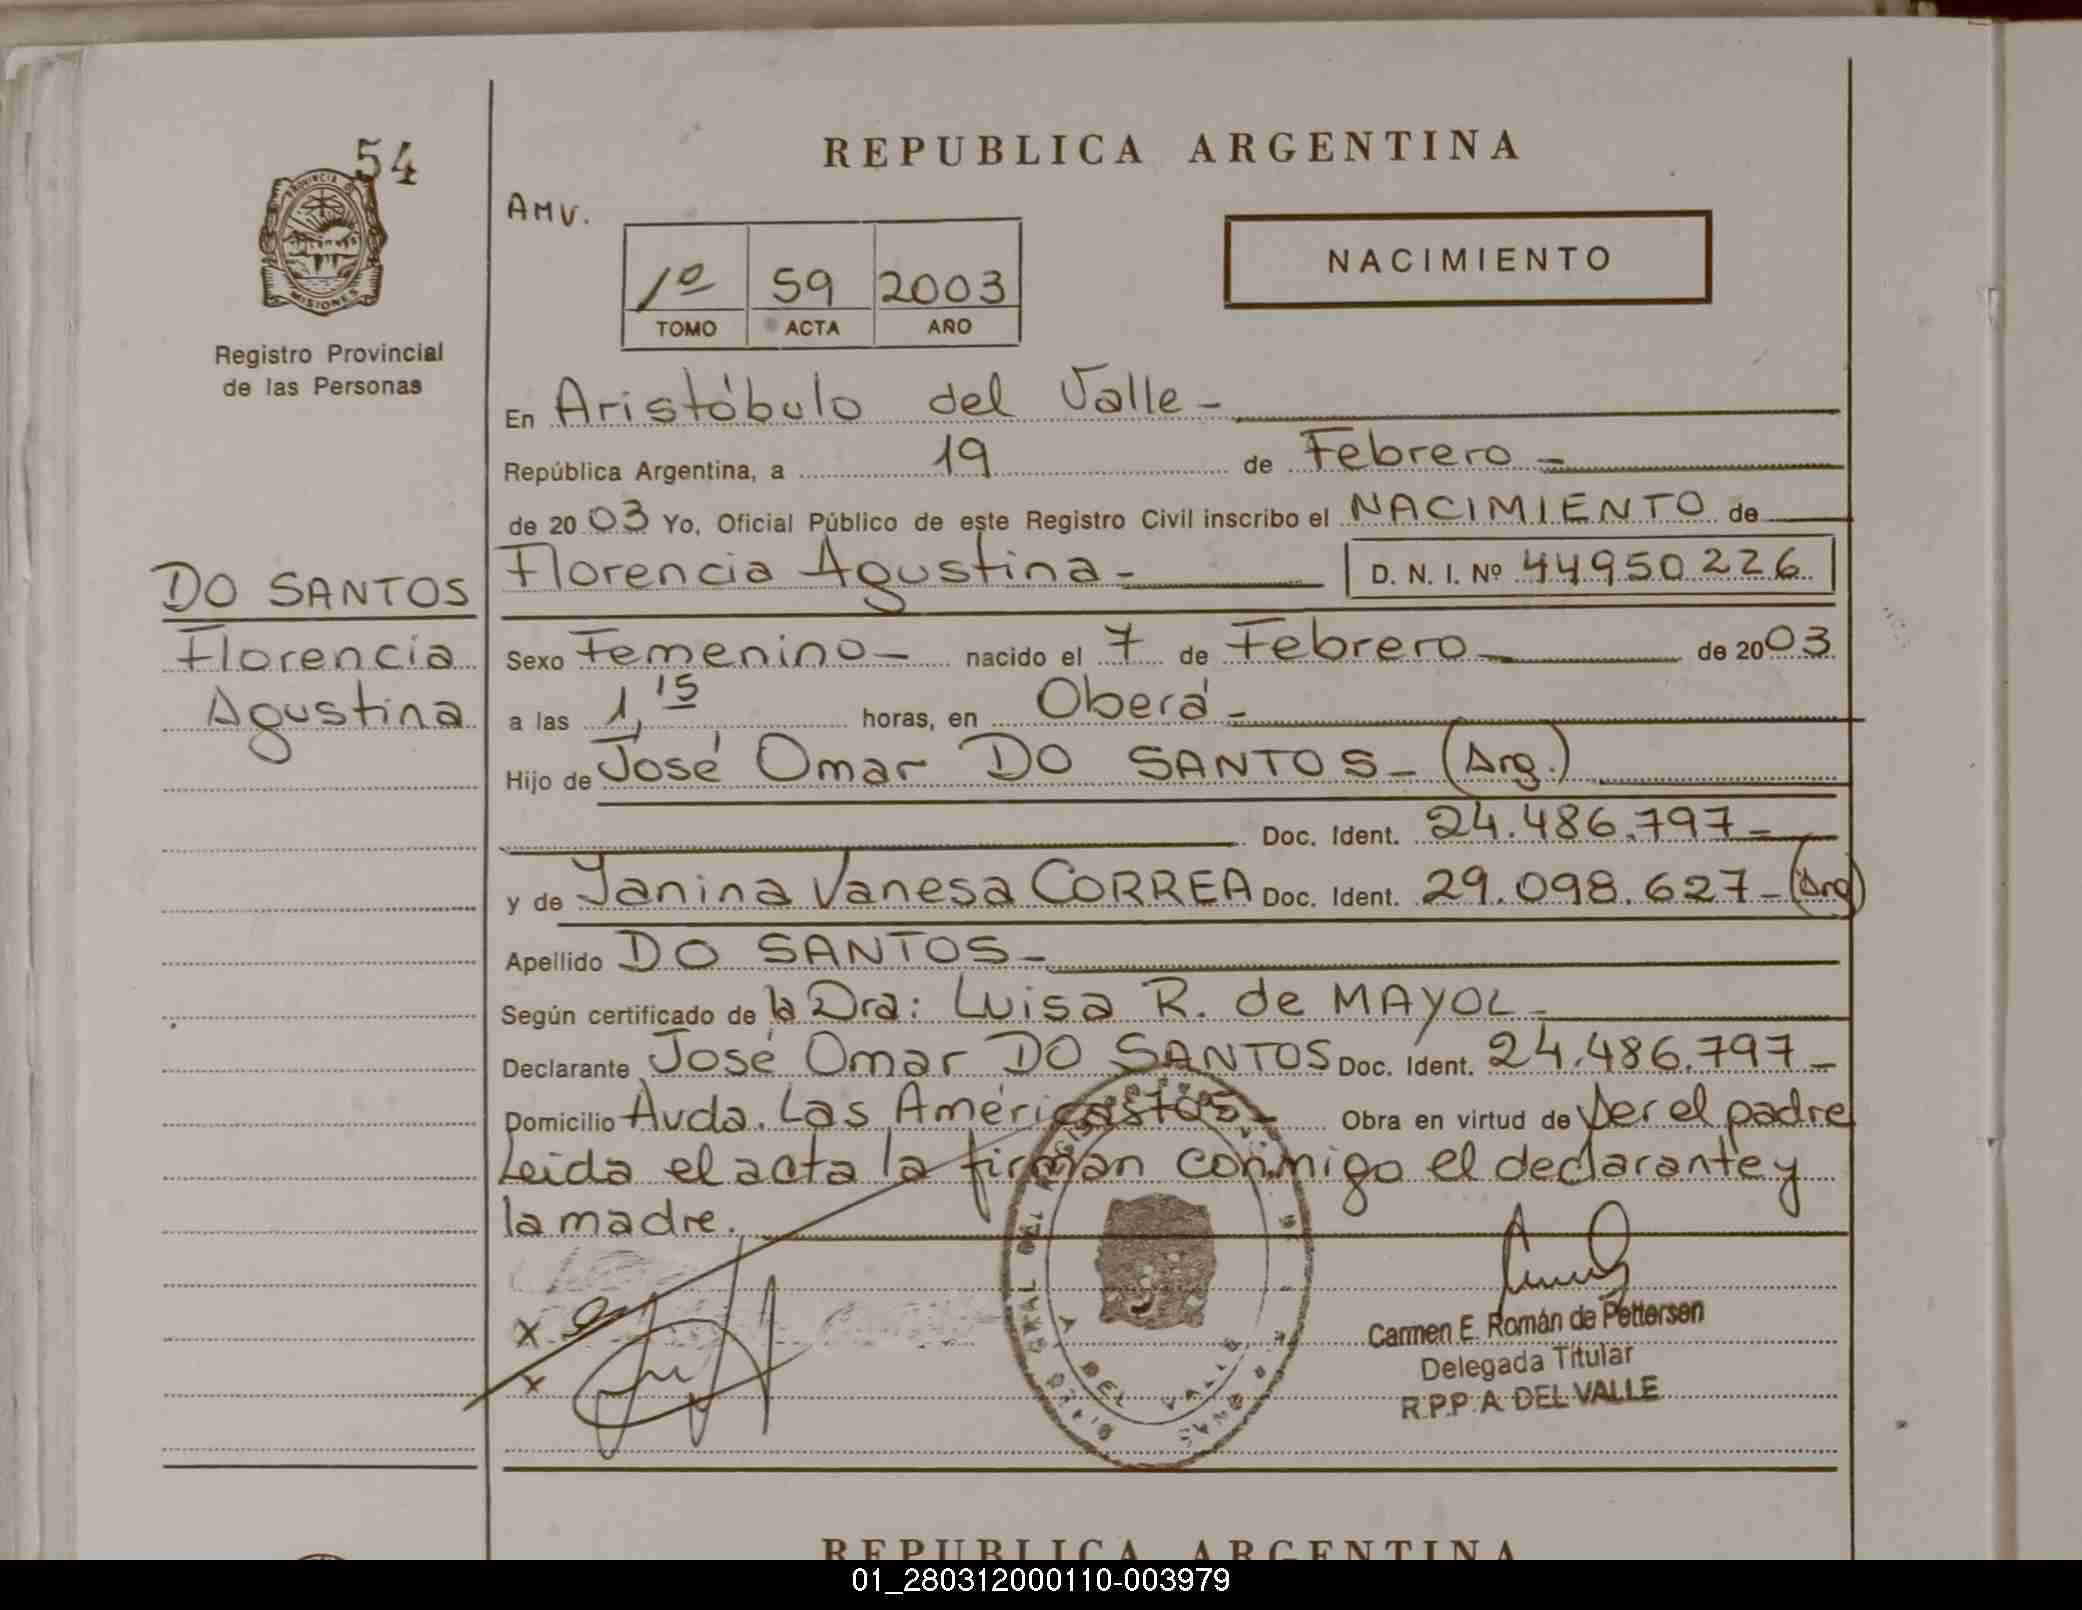 54
PROVINCIA DE
MISIONES
Registro Provincial
de las Personas
DO SANTOS
Florencia
Agustina
REPUBLICA ARGENTINA
AMV.
1º 59 2003
TOMO ACTA AÑO
NACIMIENTO
En Aristóbulo del Valle -
República Argentina, a 19 de Febrero -
de 2003 Yo, Oficial Público de este Registro Civil inscribo el NACIMIENTO de
Florencia Agustina - D. N. I. Nº 44950226
Sexo Femenino - nacido el 7 de Febrero - de 2003
a las 1,15 horas, en Oberá -
Hijo de José Omar DO SANTOS - (Arg.)
Doc. Ident. 24.486.797 -
y de Yanina Vanesa CORREA Doc. Ident. 29.098.627 - (Arg)
Apellido DO SANTOS -
Según certificado de la Dra: Luisa R. de MAYOL -
Declarante José Omar DO SANTOS Doc. Ident. 24.486.797 -
Domicilio Avda. Las Américas Obra en virtud de ser el padre
Leida el acta la firman conmigo el declarante y
la madre.
x
x
A. DEL VALLE
Carmen E. Román de Pettersen
Delegada Titular
R.P.P. A. DEL VALLE
REPUBLICA ARGENTINA
01_280312000110-003979